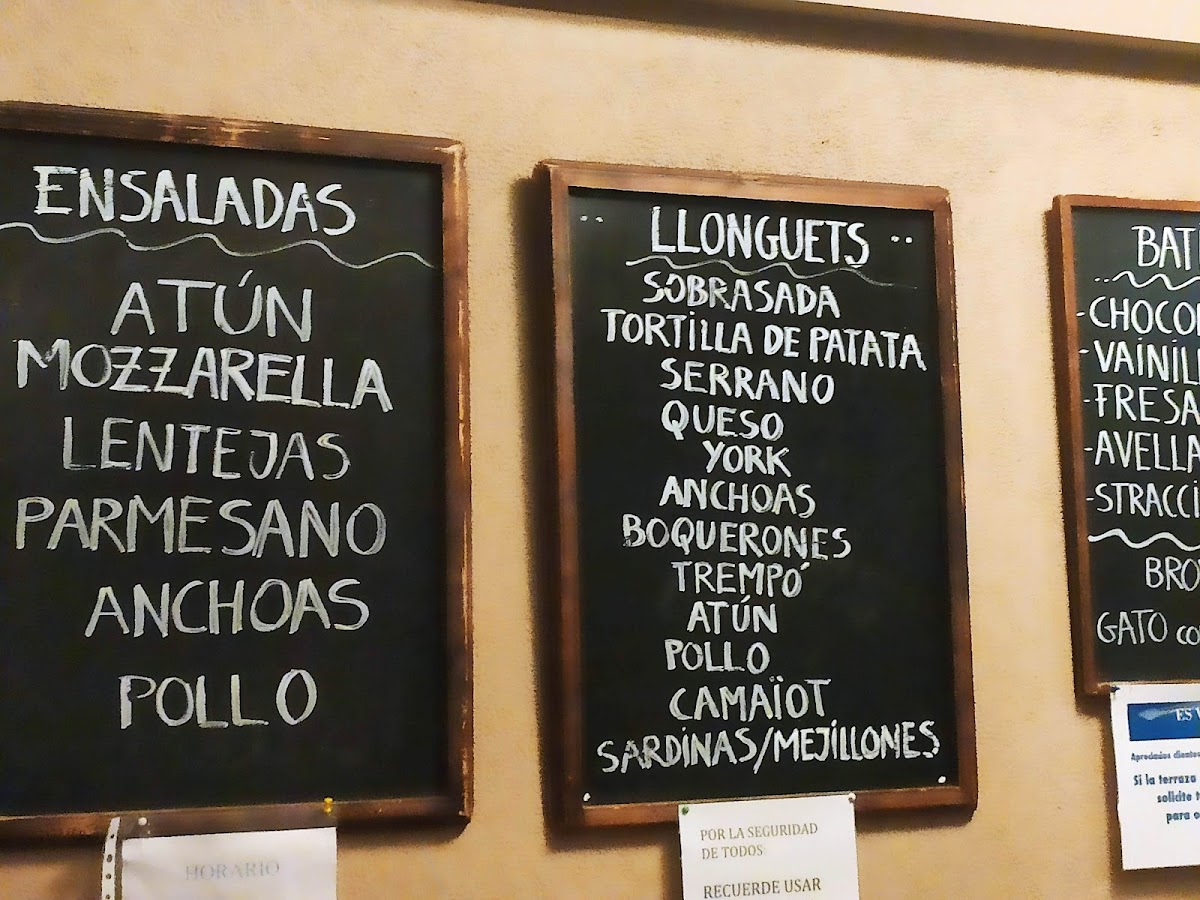 ENSALADAS
ATÚN
MOZZARELLA
LENTEJAS
PARMESANO
ANCHOAS
POLLO
HORARIO
LLONGUETS
SOBRASADA
TORTILLA DE PATATA
SERRANO
QUESO
YORK
ANCHOAS
BOQUERONES
TREMPÓ
ATÚN
POLLO
CAMAÏOT
SARDINAS/MEJILLONES
POR LA SEGURIDAD
DE TODOS
RECUERDE USAR
BATI
-CHOCOL
-VAINILL
-FRESA
-AVELLA
-STRACCI
BROW
GATO CO
ES
Apreciados clientes
Si la terraza
solicite t
para o